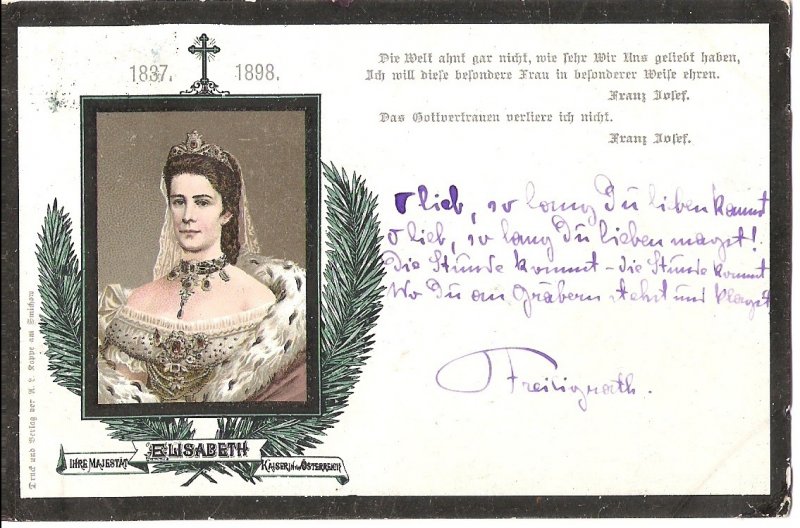 1837. 1898.
Die Welt ahnt gar nicht, wie sehr Wir Uns geliebt haben,
Ich will diese besondere Frau in besonderer Weise ehren.
Franz Josef.
Das Gottvertrauen verliere ich nicht.
Franz Josef.
O lieb, so lang Du lieben kannst
O lieb, so lang Du lieben magst!
Die Stunde kommt – die Stunde kommt
Wo Du an Gräbern stehst und klagst
Freiligrath.
IHRE MAJESTÄT
ELISABETH
KAISERIN VON ÖSTERREICH
Druck und Verlag von A. L. Koppe am